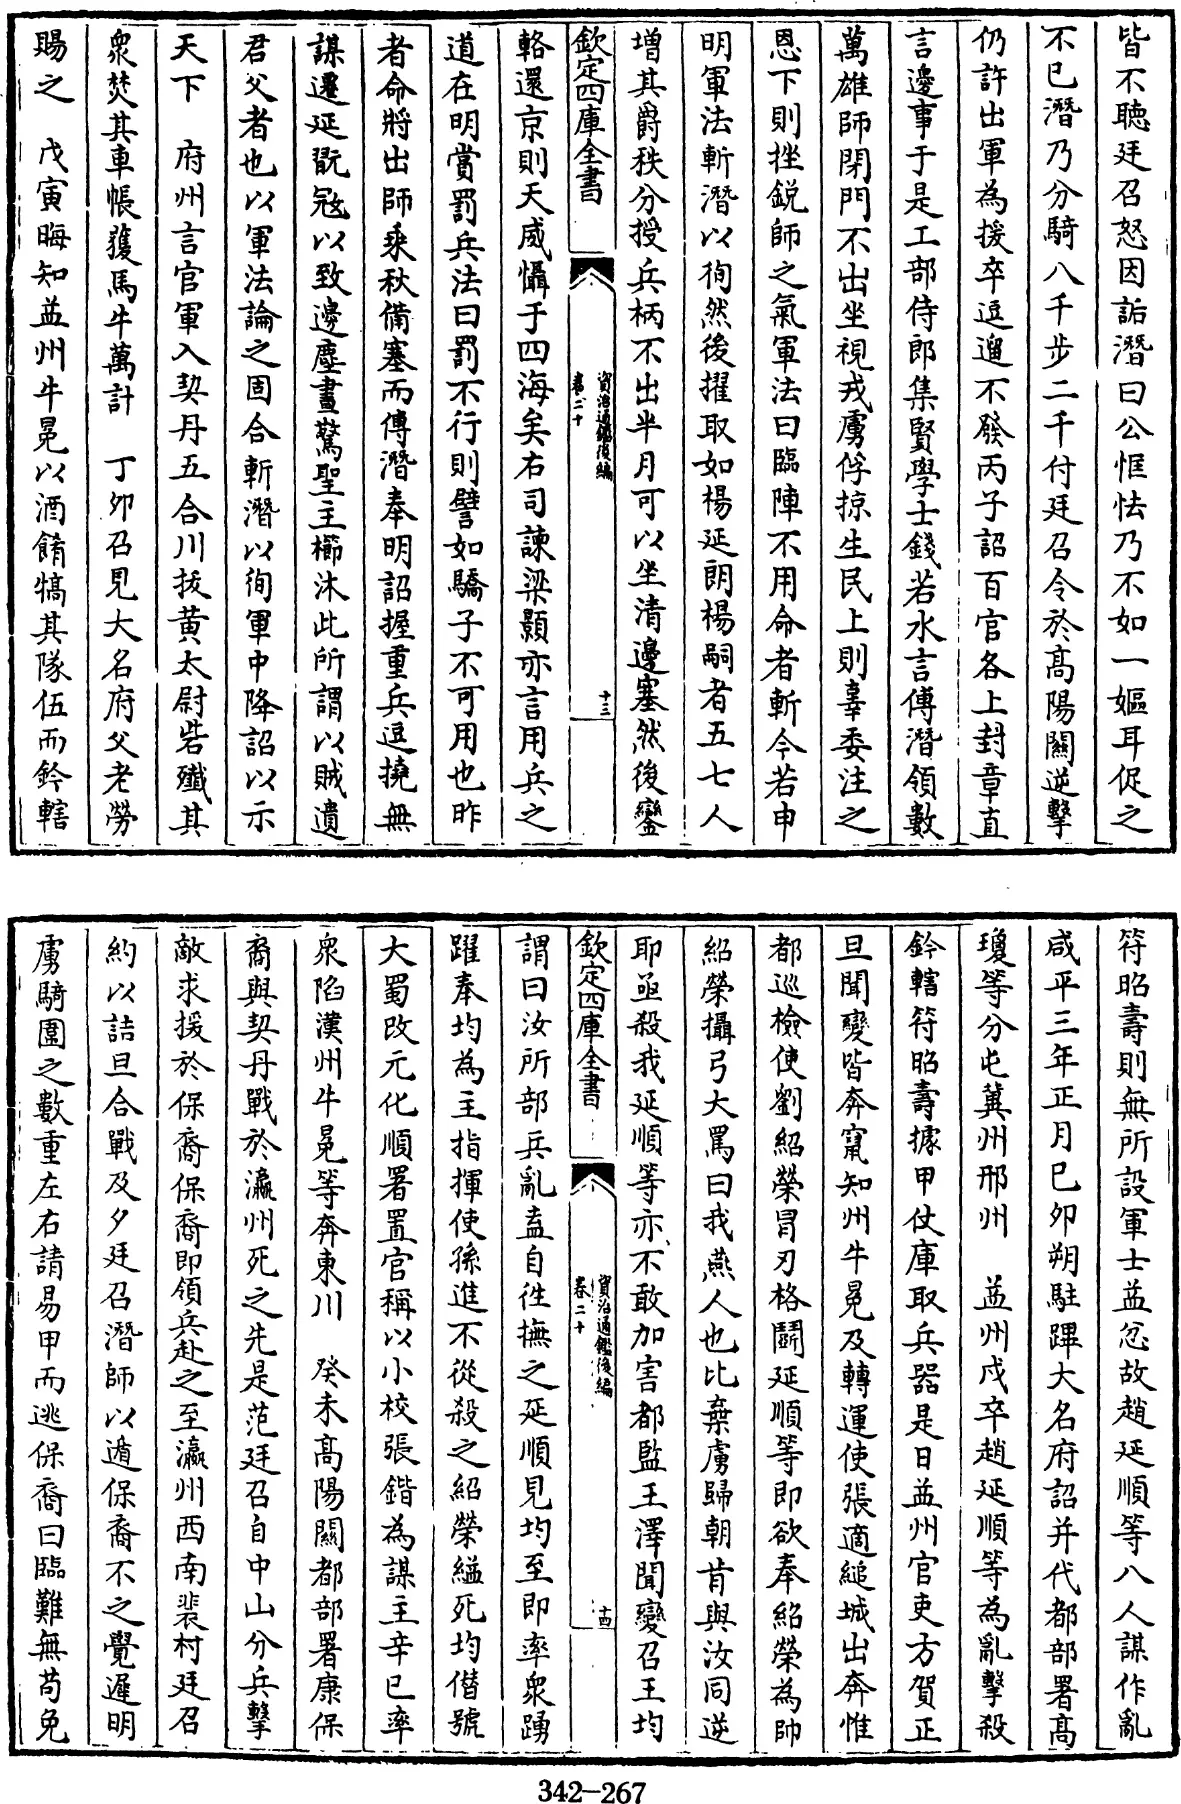 皆不聴廷召怒因詬潛曰公恇怯乃不如一嫗耳促之
不已潛乃分騎八千步二千付廷召令於髙陽關逆擊
仍許出軍為援卒逗遛不發丙子詔百官各上封章直
言邊事于是工部侍郎集賢學士錢若水言傅潛領數
萬雄師閉門不出坐視戎虜俘掠生民上則辜委注之
恩下則挫銳師之氣軍法曰臨陣不用命者斬今若申
明軍法斬潛以徇然後擢取如楊延朗楊嗣者五七人
增其爵秩分授兵柄不出半月可以坐清邊塞然後鑾
欽定四庫全書
資治通鑑後編
卷二十
十三
輅還京則天威懾于四海矣右司諫梁顥亦言用兵之
道在明賞罰兵法曰罰不行則譬如驕子不可用也昨
者命將出師乘秋備塞而傅潛奉明詔握重兵逗撓無
謀遷延翫冦以致邊塵晝驚聖主櫛沐此所謂以賊遺
君父者也以軍法論之固合斬潛以徇軍中降詔以示
天下　府州言官軍入契丹五合川拔黄太尉砦殲其
衆焚其車帳獲馬牛萬計　丁卯召見大名府父老勞
賜之　戊寅晦知益州牛冕以酒餚犒其隊伍而鈐轄
符昭壽則無所設軍士益忿故趙延順等八人謀作亂
咸平三年正月已卯朔駐蹕大名府詔并代都部署髙
瓊等分屯冀州邢州　益州戍卒趙延順等為亂擊殺
鈐轄符昭壽據甲仗庫取兵器是日益州官吏方賀正
旦聞變皆奔竄知州牛冕及轉運使張適縋城出奔惟
都巡檢使劉紹榮冒刃格鬬延順等即欲奉紹榮為帥
紹榮攝弓大罵曰我燕人也比棄虜歸朝肯與汝同逆
耶亟殺我延順等亦不敢加害都監王澤聞變召王均
欽定四庫全書
資治通鑑後編
卷二十
十四
謂曰汝所部兵亂盍自徃撫之延順見均至即率衆踴
躍奉均為主指揮使孫進不從殺之紹榮縊死均僭號
大蜀改元化順署置官稱以小校張鍇為謀主辛巳率
衆陷漢州牛冕等奔東川　癸未髙陽關都部署康保
裔與契丹戰於瀛州死之先是范廷召自中山分兵擊
敵求援於保裔保裔即領兵赴之至瀛州西南裴村廷召
約以詰旦合戰及夕廷召潛師以遁保裔不之覺遲明
虜騎圍之數重左右請易甲而逃保裔曰臨難無苟免
342-267